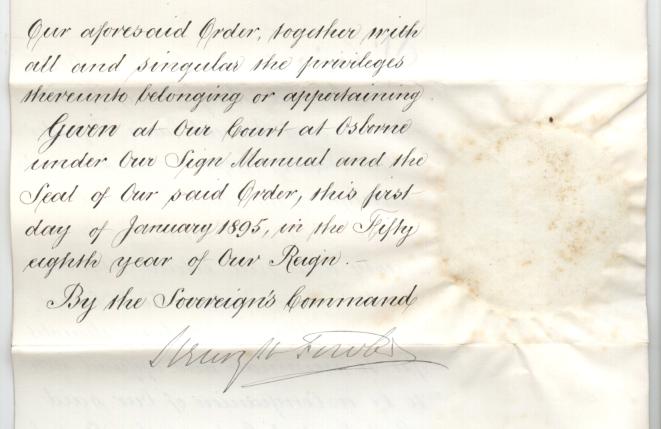 Our aforesaid Order, together with
all and singular the privileges
thereunto belonging or appertaining
Given at Our Court at Osborne
under Our Sign Manual and the
Seal of Our said Order, this first
day of January 1895, in the Fifty
eighth year of Our Reign. –
By the Sovereign's Command
Henry H Fowler